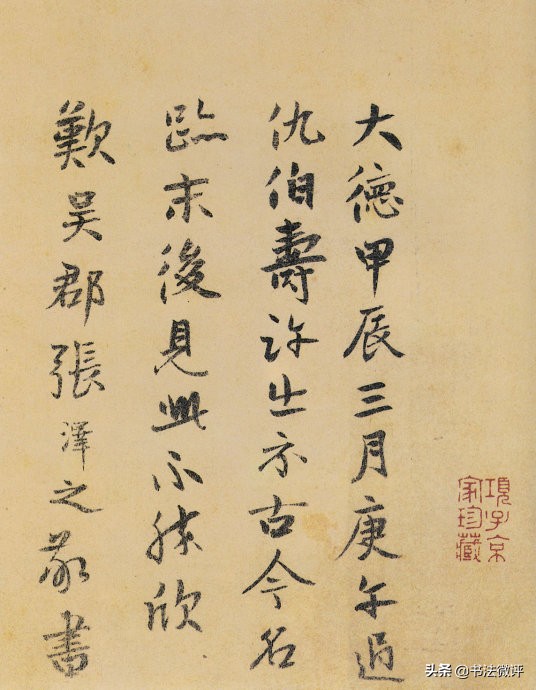 大德甲辰三月庚午過
仇伯壽許出示古今名
跡末後見此不勝欣
歎吳郡張澤之敬書
項子京
家珍藏
头条 @书法微评